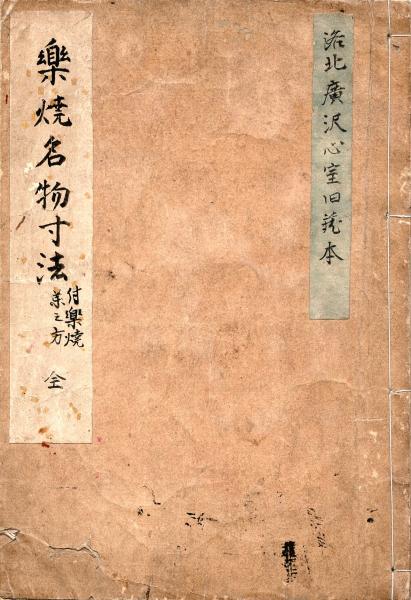 洛北廣沢心室旧蔵本
樂焼名物寸法
付樂焼
薬之方
全